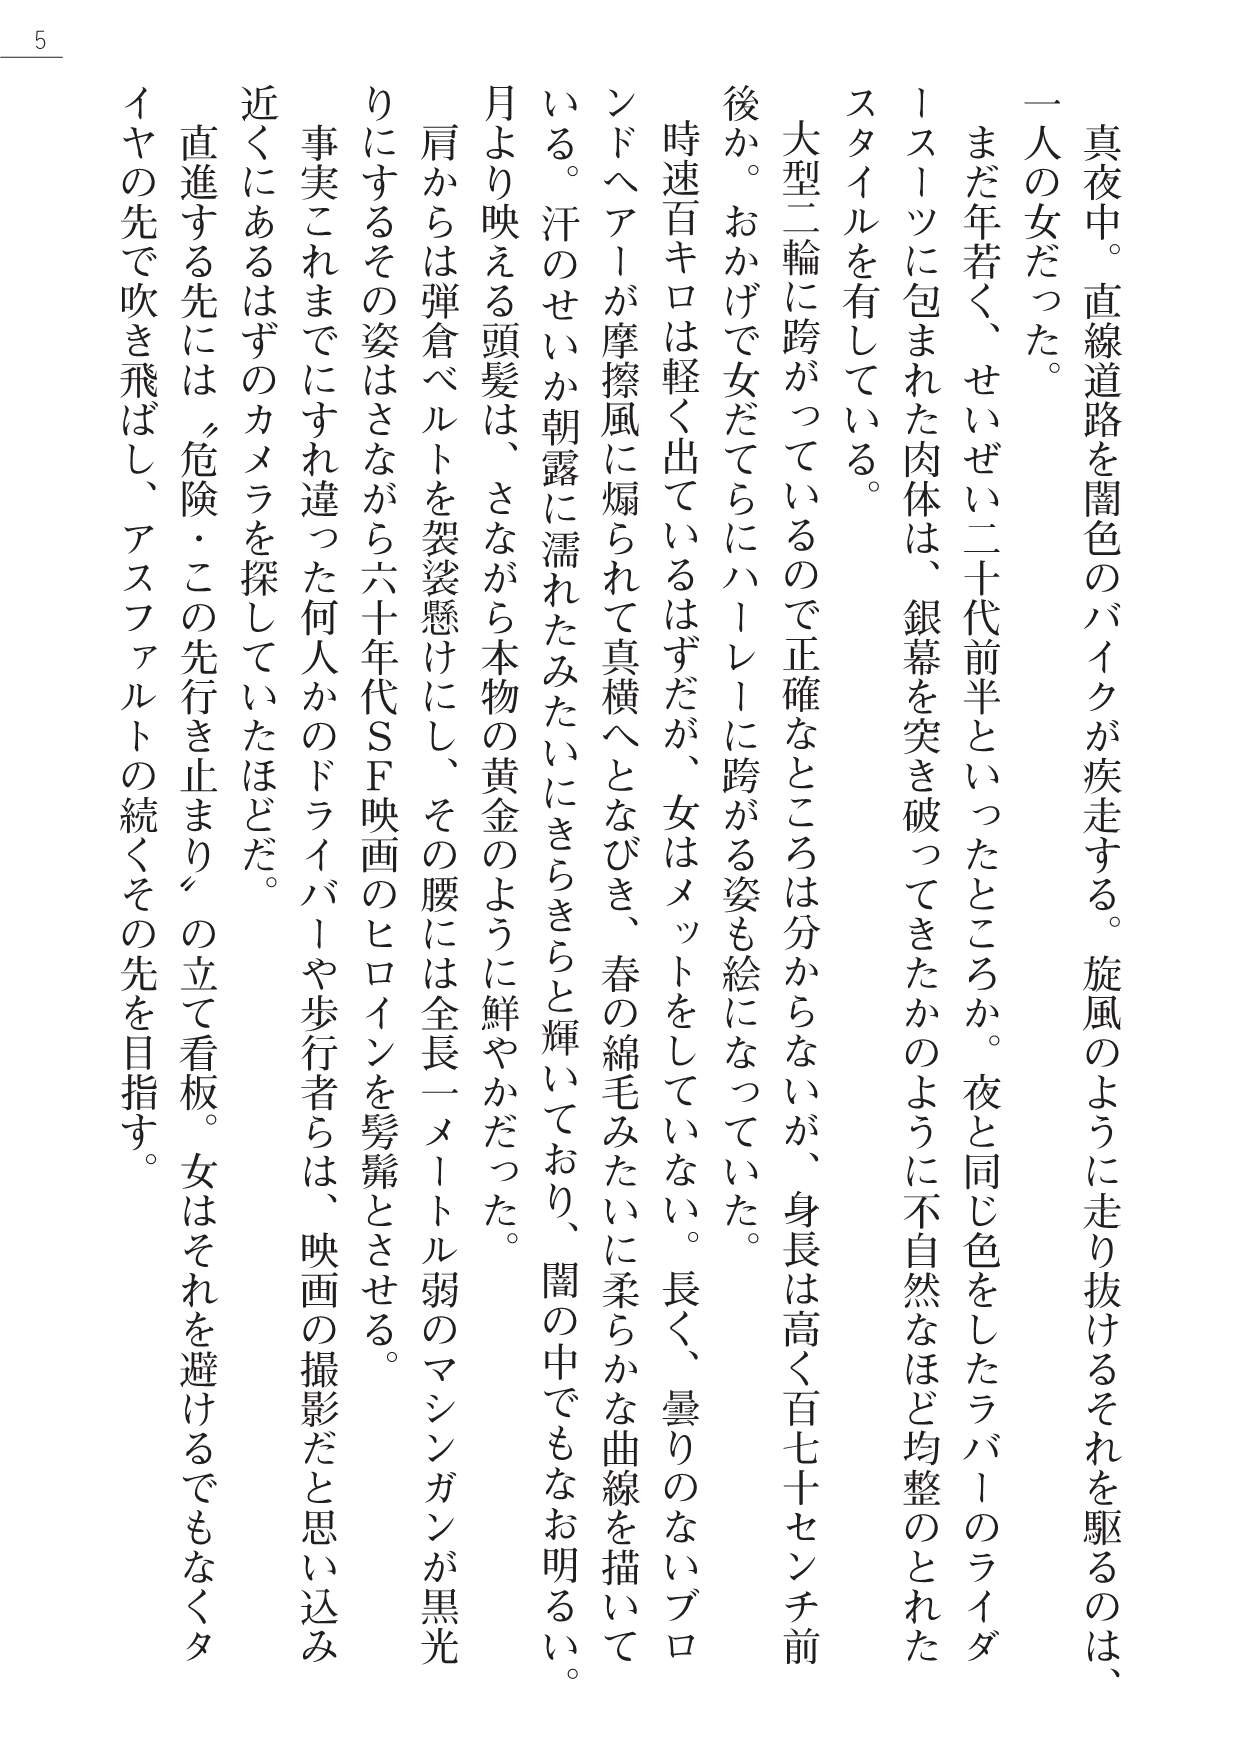 5
真夜中。直線道路を闇色のバイクが疾走する。旋風のように走り抜けるそれを駆るのは、
一人の女だった。
まだ年若く、せいぜい二十代前半といったところか。夜と同じ色をしたラバーのライダ
ースーツに包まれた肉体は、銀幕を突き破ってきたかのように不自然なほど均整のとれた
スタイルを有している。
大型二輪に跨がっているので正確なところは分からないが、身長は高く百七十センチ前
後か。おかげで女だてらにハーレーに跨がる姿も絵になっていた。
時速百キロは軽く出ているはずだが、女はメットをしていない。長く、曇りのないブロ
ンドヘアーが摩擦風に煽られて真横へとなびき、春の綿毛みたいに柔らかな曲線を描いて
いる。汗のせいか朝露に濡れたみたいにきらきらと輝いており、闇の中でもなお明るい。
月より映える頭髪は、さながら本物の黄金のように鮮やかだった。
肩からは弾倉ベルトを袈裟懸けにし、その腰には全長一メートル弱のマシンガンが黒光
りにするその姿はさながら六十年代ＳＦ映画のヒロインを髣髴とさせる。
事実これまでにすれ違った何人かのドライバーや歩行者らは、映画の撮影だと思い込み
近くにあるはずのカメラを探していたほどだ。
直進する先には〝危険・この先行き止まり〟の立て看板。女はそれを避けるでもなくタ
イヤの先で吹き飛ばし、アスファルトの続くその先を目指す。